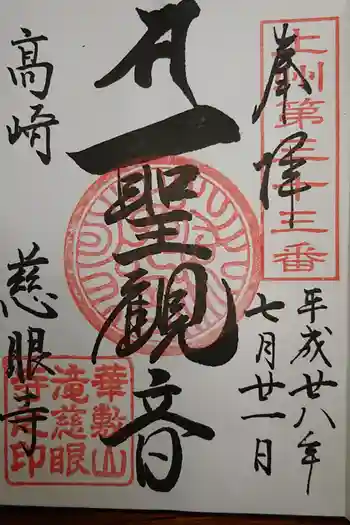 上州第三十三番
奉拝
平成廿八年
七月廿一日
聖観音
高崎
慈眼寺
華敷山
滝慈眼
寺之印